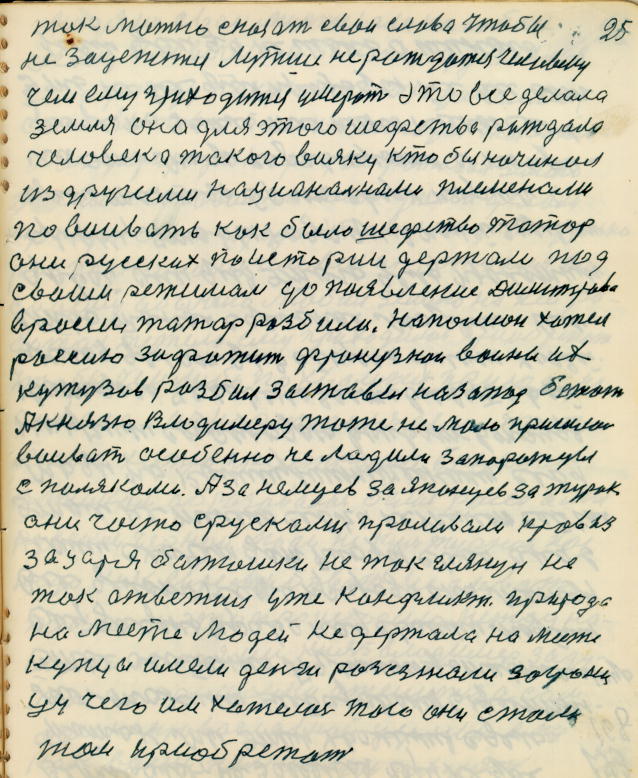 так можно сказат свои слова чтобы 25
не зацепится лутше не рождатся человеку
чем ему приходится умерат это все делала
земля она для этого шефства рождала
человека такого вояку кто бы начинал
из другими национанами племенами
повоивать как было шефство татар
они русских по истории держали под
своим режимам до появление Дмитрова
в росии, татар розбили. Наполион хотел
россию зафатит французкой воины их
кутузов розбил заставел назапад бежат
А князю Владимеру тоже не мало пришлос
воиват особенно не ладили запорожцы
с поляками. А за немцев за японцев за турок
они часто срусками проливали кров из
за царя батюшки не так глянул не
так ответил уже конфликт. природа
на месте людей не держала на месте
купцы имели денги розезжали заграни
цу чего им хотелос того они стали
там приобретат